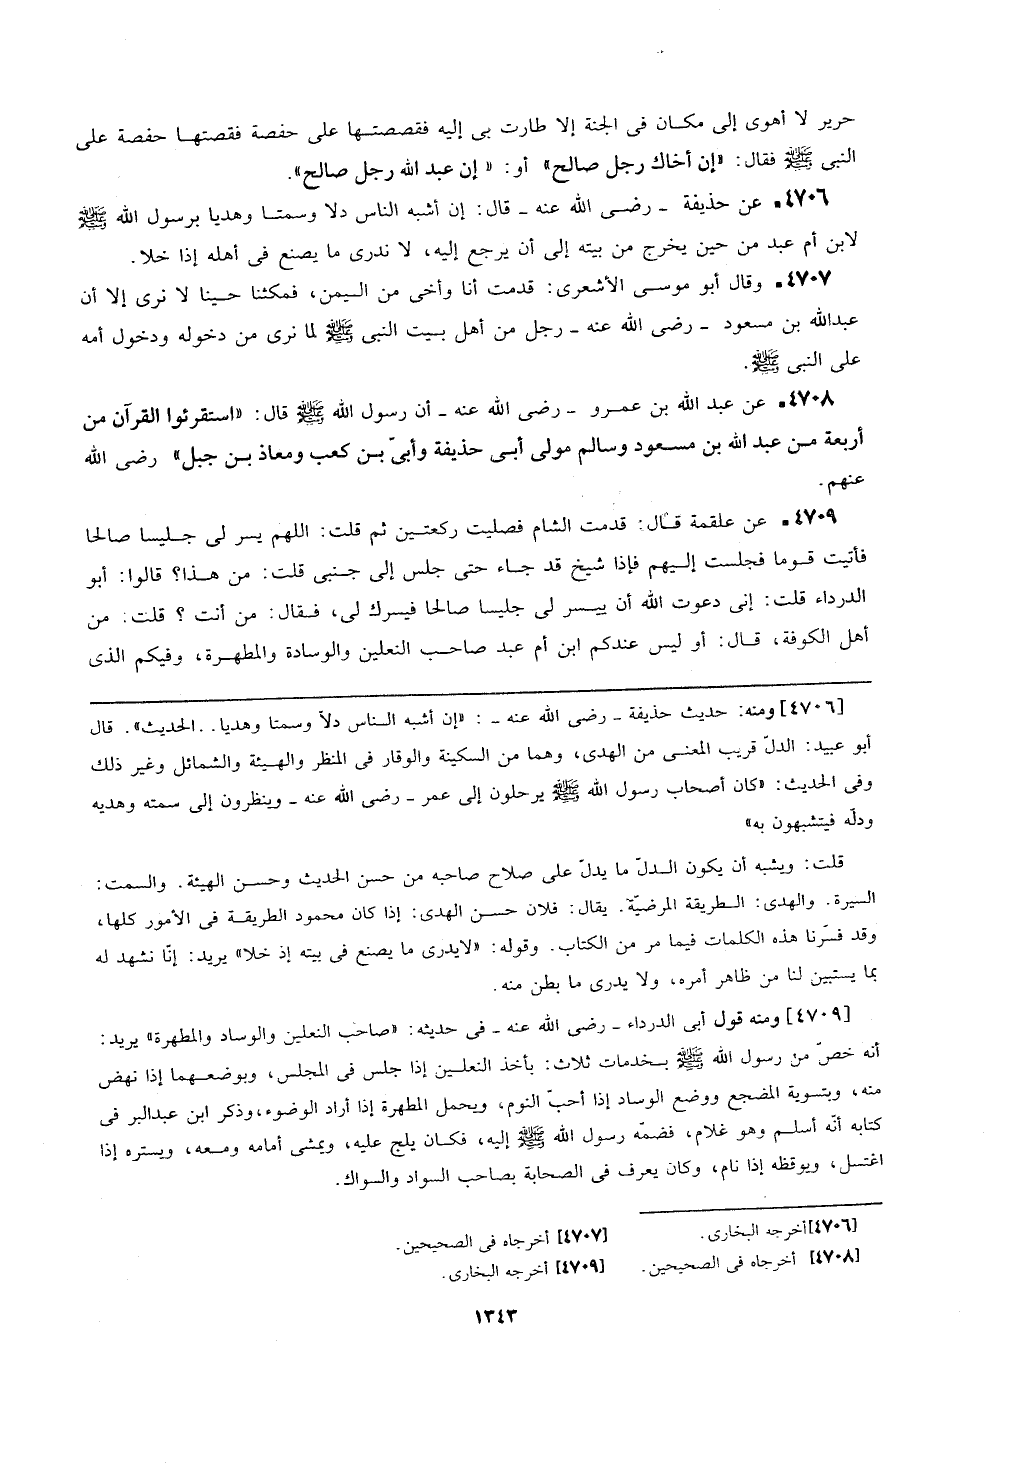 حرير لا أهوى إلى مكان فى الجنة إلا طارت بى إليه فقصصتها على حفصة فقصتها حفصة على
النبى ﷺ فقال: «إن أخاك رجل صالح» أو: « إن عبد الله رجل صالح».
٤٧٠٦. عن حذيفة ـ رضى الله عنه ـ قال: إن أشبه الناس دلا وسمتا وهديا برسول الله ﷺ
لابن أم عبد من حين يخرج من بيته إلى أن يرجع إليه، لا ندرى ما يصنع فى أهله إذا خلا.
٤٧٠٧. وقال أبو موسى الأشعرى: قدمت أنا وأخى من اليمن، فمكثنا حينا لا نرى إلا أن
عبدالله بن مسعود ـ رضى الله عنه ـ رجل من أهل بيت النبى ﷺ لما نرى من دخوله ودخول أمه
على النبى ﷺ.
٤٧٠٨. عن عبد الله بن عمرو ـ رضى الله عنه ـ أن رسول الله ﷺ قال: «استقرئوا القرآن من
أربعة من عبد الله بن مسعود وسالم مولى أبى حذيفة وأبىّ بن كعب ومعاذ بن جبل» رضى الله
عنهم.
٤٧٠٩. عن علقمة قال: قدمت الشام فصليت ركعتين ثم قلت: اللهم يسر لى جليسا صالحا
فأتيت قوما فجلست إليهم فإذا شيخ قد جاء حتى جلس إلى جنبى قلت: من هذا؟ قالوا: أبو
الدرداء قلت: إنى دعوت الله أن ييسر لى جليسا صالحا فيسرك لى، فقال: من أنت ؟ قلت: من
أهل الكوفة، قال: أو ليس عندكم ابن أم عبد صاحب النعلين والوسادة والمطهرة، وفيكم الذى
[٤٧٠٦] ومنه: حديث حذيفة ـ رضى الله عنه ـ : «إن أشبه الناس دلاّ وسمتا وهديا.. الحديث». قال
أبو عبيد: الدلّ قريب المعنى من الهدى، وهما من السكينة والوقار فى المنظر والهيئة والشمائل وغير ذلك
وفى الحديث: «كان أصحاب رسول الله ﷺ يرحلون إلى عمر ـ رضى الله عنه ـ وينظرون إلى سمته وهديه
ودلّه فيتشبهون به»
قلت: ويشبه أن يكون الدلّ ما يدلّ على صلاح صاحبه من حسن الحديث وحسن الهيئة. والسمت:
السيرة. والهدى: الطريقة المرضيّة. يقال: فلان حسن الهدى: إذا كان محمود الطريقة فى الأمور كلها،
وقد فسّرنا هذه الكلمات فيما مر من الكتاب. وقوله: «لايدرى ما يصنع فى بيته إذ خلا» يريد: إنّا نشهد له
بما يستبين لنا من ظاهر أمره، ولا يدرى ما بطن منه.
[٤٧٠٩] ومنه قول أبى الدرداء ـ رضى الله عنه ـ فى حديثه: «صاحب النعلين والوساد والمطهرة» يريد:
أنه خصّ من رسول الله ﷺ بخدمات ثلاث: بأخذ النعلين إذا جلس فى المجلس، وبوضعهما إذا نهض
منه، وبتسوية المضجع ووضع الوساد إذا أحبّ النوم، ويحمل المطهرة إذا أراد الوضوء، وذكر ابن عبدالبر فى
كتابه أنّه أسلم وهو غلام، فضمّه رسول الله ﷺ إليه، فكان يلج عليه، ويمشى أمامه ومعه، ويستره إذا
اغتسل، ويوقظه إذا نام، وكان يعرف فى الصحابة بصاحب السواد والسواك.
[٤٧٠٦] أخرجه البخارى. [٤٧٠٧] أخرجاه فى الصحيحين.
[٤٧٠٨] أخرجاه فى الصحيحين. [٤٧٠٩] أخرجه البخارى.
١٣٤٣